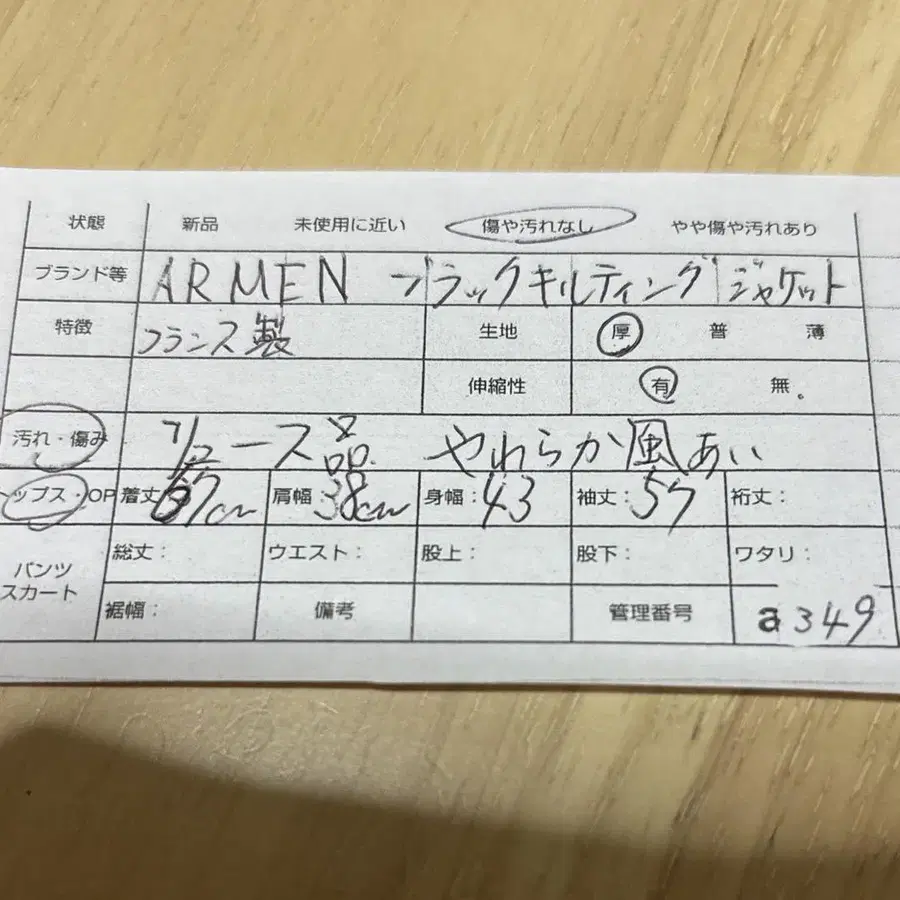 状態 新品 未使用に近い 傷や汚れなし やや傷や汚れあり
ブランド等 ARMEN ブラックキルティングジャケット
特徴 フランス製 生地 厚 普 薄
伸縮性 有 無
汚れ・傷み ース品 やわらか風あい
トップス・OP 着丈 67cm 肩幅:38cm 身幅:43 袖丈:57 裄丈:
パンツ 総丈: ウエスト: 股上: 股下: ワタリ:
スカート 裾幅: 備考 管理番号 a349